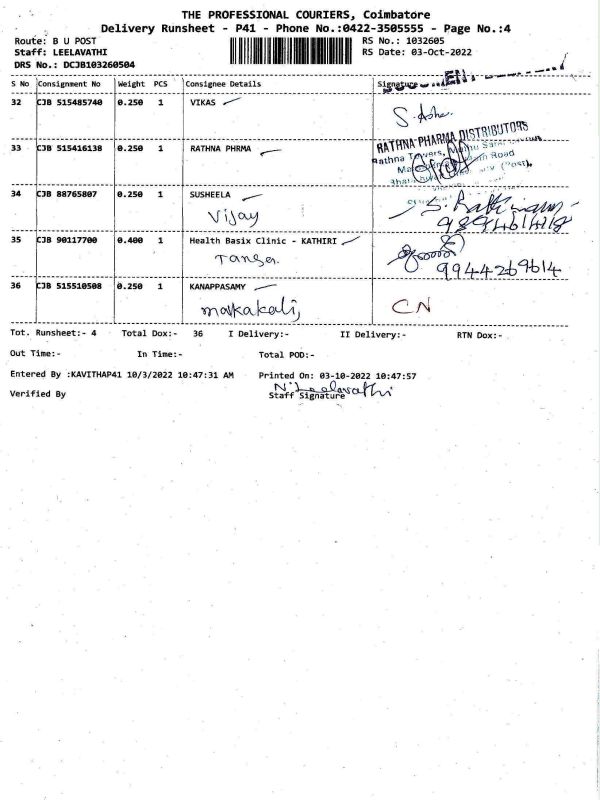 THE PROFESSIONAL COURIERS, Coimbatore
Delivery Runsheet - P41 - Phone No.:0422-3505555 - Page No.:4
Route: B U POST RS No.: 1032605
Staff: LEELAVATHI RS Date: 03-Oct-2022
DRS No.: DCJB103260504
S No Consignment No Weight PCS Consignee Details Signature
32 CJB 515485740 0.250 1 VIKAS
S. Asha.
33 CJB 515416138 0.250 1 RATHNA PHRMA
RATHNA PHARMA DISTRIBUTORS
Rathna Towers,
Road
(Post),
34 CJB 88765807 0.250 1 SUSHEELA
Vijay
35 CJB 90117700 0.400 1 Health Basix Clinic - KATHIRI
9944269614
36 CJB 515510508 0.250 1 KANAPPASAMY
CN
Tot. Runsheet:- 4 Total Dox:- 36 I Delivery:- II Delivery:- RTN Dox:-
Out Time:- In Time:- Total POD:-
Entered By :KAVITHAP41 10/3/2022 10:47:31 AM Printed On: 03-10-2022 10:47:57
N. Leelavathi
Verified By Staff Signature